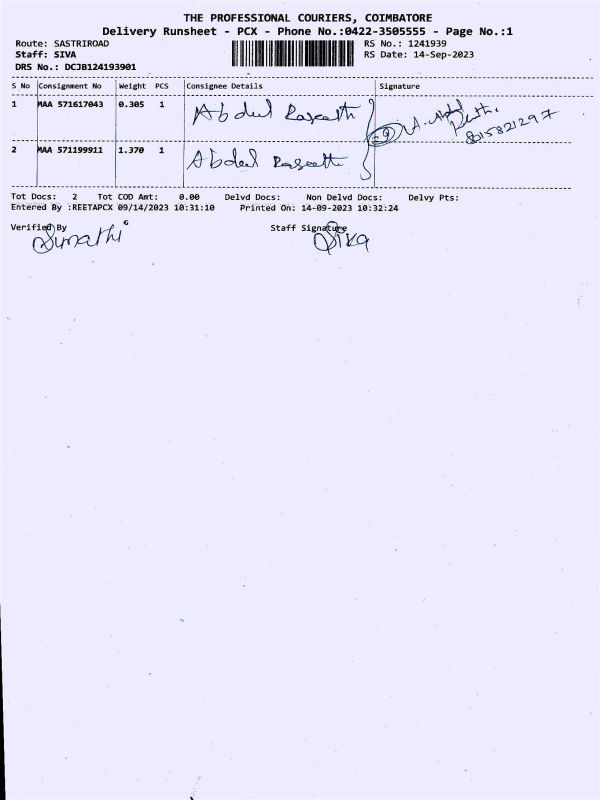 THE PROFESSIONAL COURIERS, COIMBATORE
Delivery Runsheet - PCX - Phone No.:0422-3505555 - Page No.:1
Route: SASTRIROAD RS No.: 1241939
Staff: SIVA RS Date: 14-Sep-2023
DRS No.: DCJB124193901
S No Consignment No Weight PCS Consignee Details Signature
1 MAA 571617043 0.305 1 Abdul
2 MAA 571199911 1.370 1 Abdul
Tot Docs: 2 Tot COD Amt: 0.00 Delvd Docs: Non Delvd Docs: Delvy Pts:
Entered By :REETAPCX 09/14/2023 10:31:10 Printed On: 14-09-2023 10:32:24
Verified By Staff Signature
Sumathi Siva